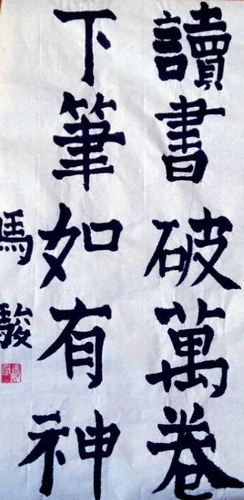 讀書破萬卷
下筆如有神
馬駿